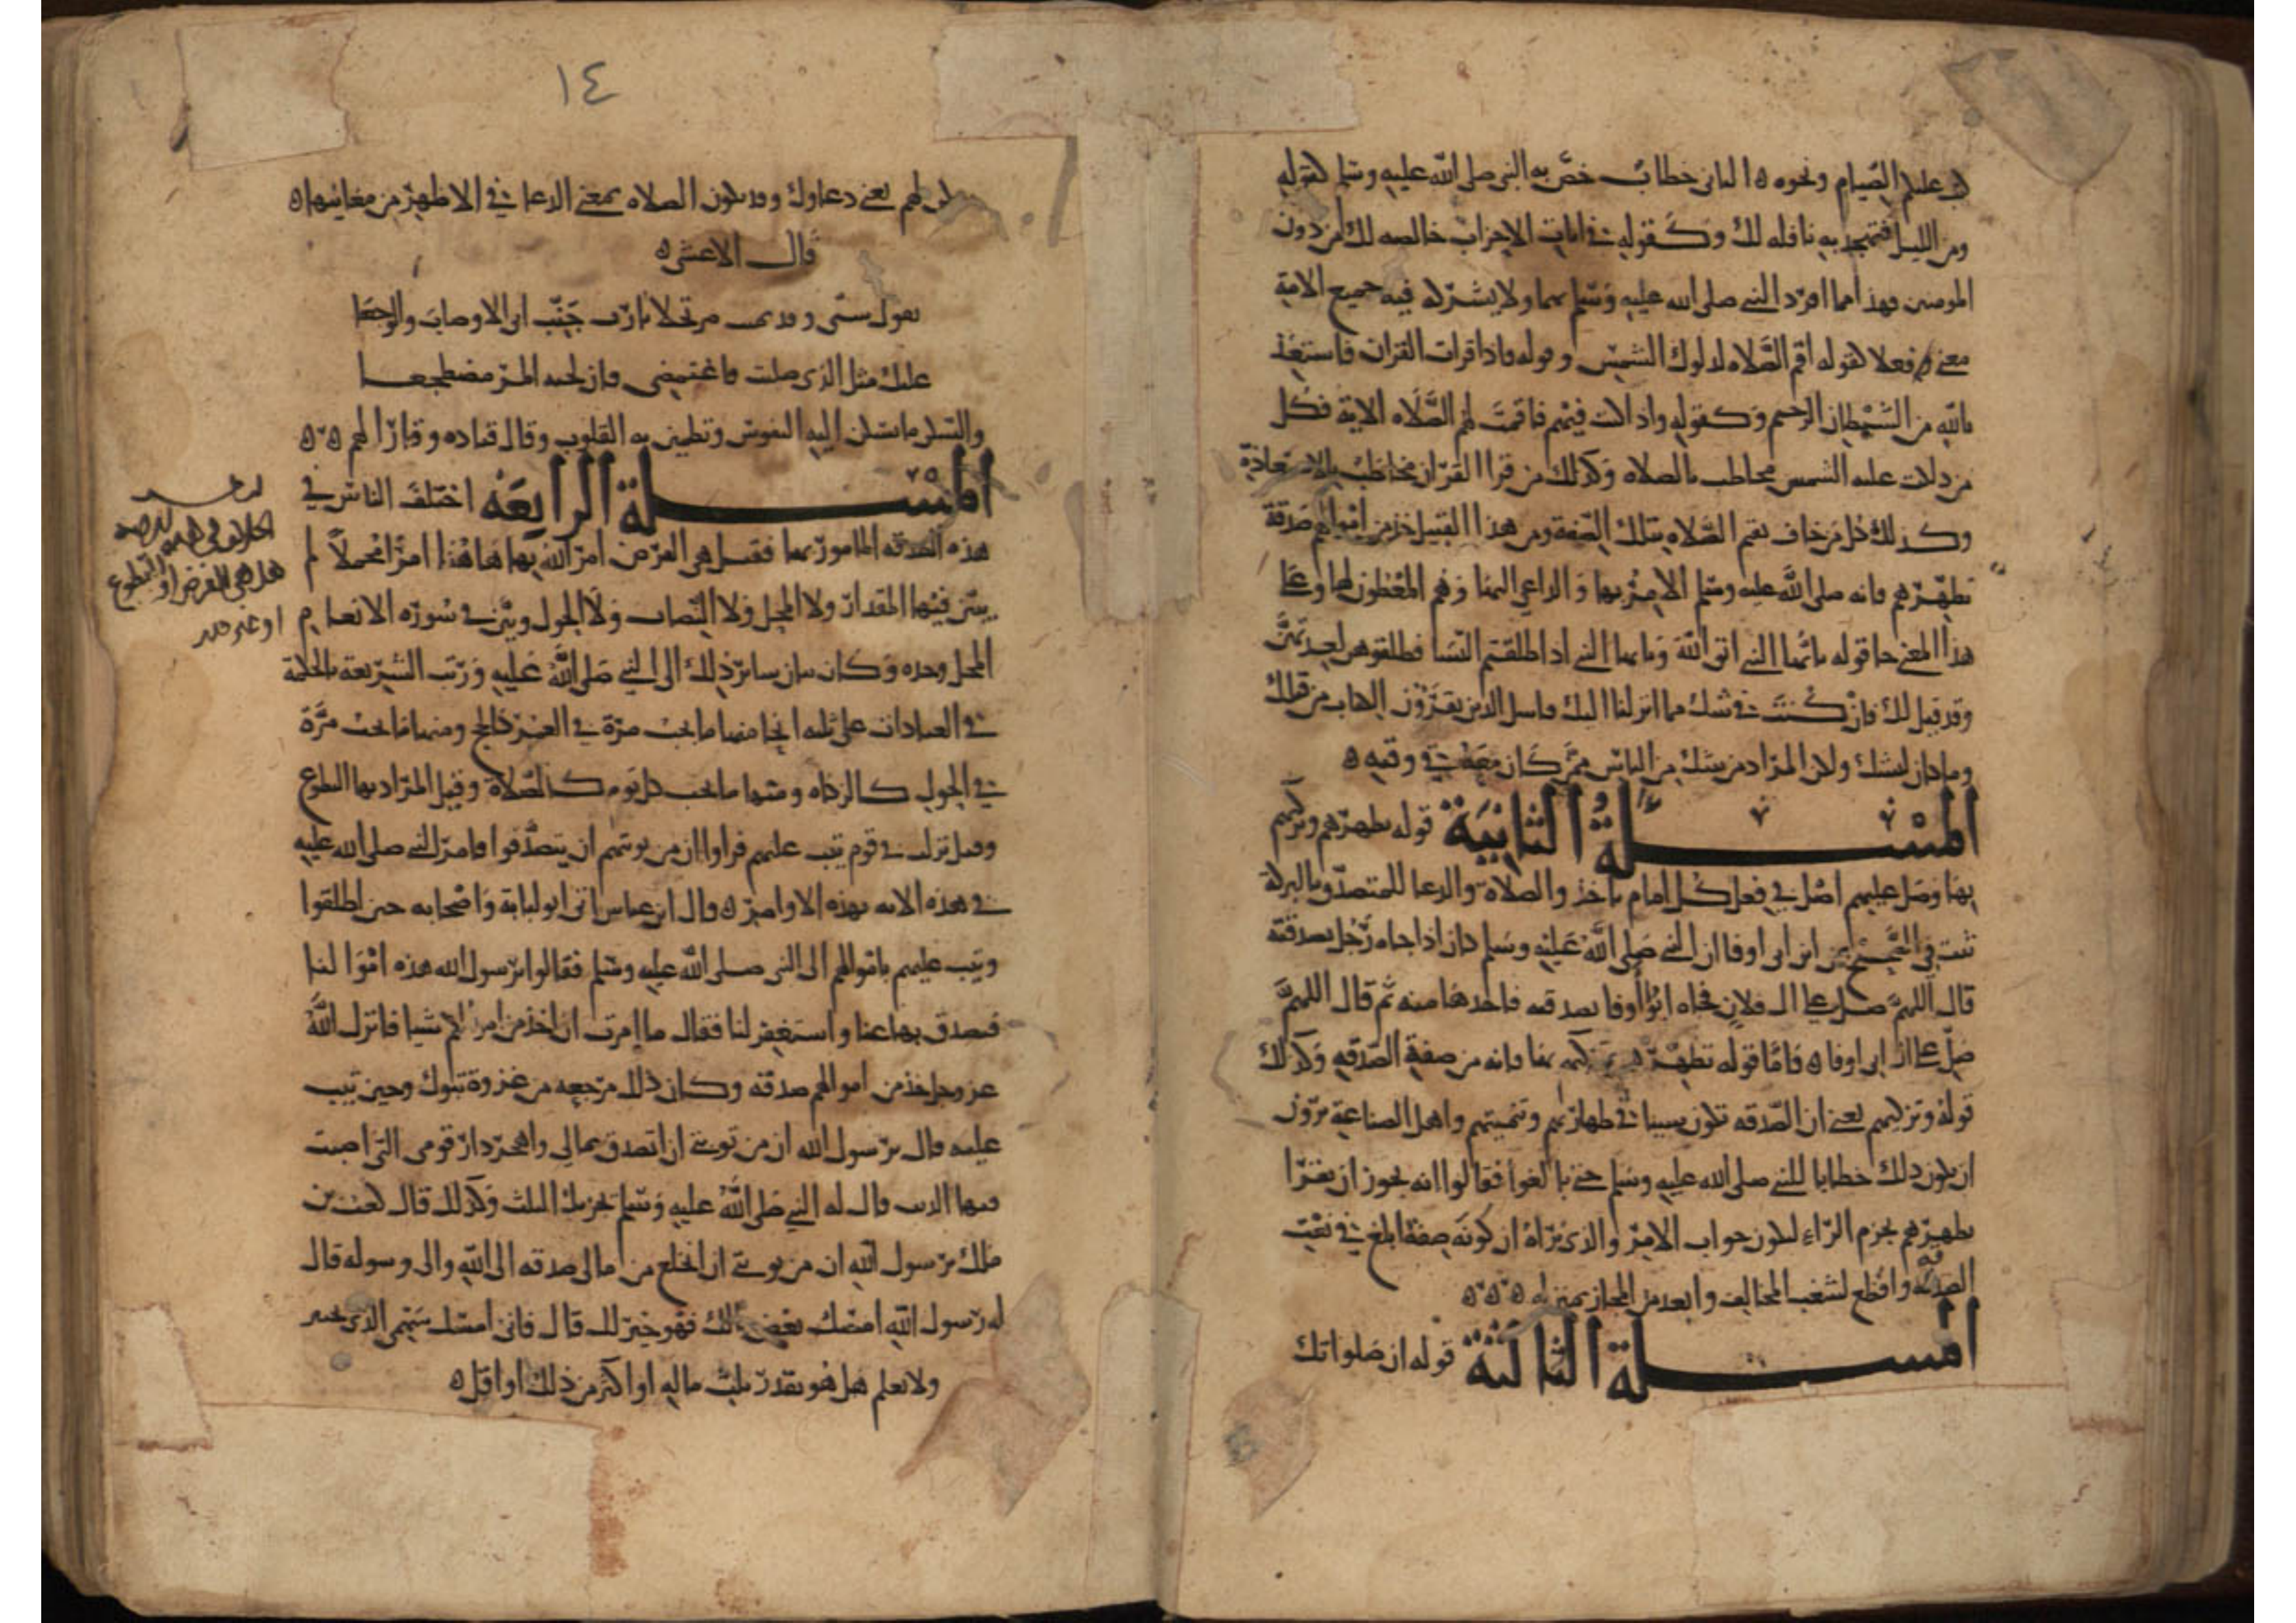 عليكم الصيام ونحوه ه الثاني خطاب خص به النبي صلى الله عليه وسلم كقوله
ومن الليل فتهجد به نافلة لك وكقوله في اية الاحزاب خالصة لك من دون
المومنين فهذا مما افرد النبي صلى الله عليه وسلم بها ولا يشركه فيه جميع الامة
معنى وفعلا كقوله اقم الصلاه لدلوك الشمس وقوله فاذا قرات القران فاستعذ
بالله من الشيطان الرجيم وكقوله واذا كنت فيهم فاقمت لهم الصلاه الاية فكل
من دلكت عليه الشمس مخاطب بالصلاه وكذلك من قرا القران مخاطب بالاستعاذة
وكذلك كل من خاف يقيم الصلاه بتلك الصفة ومن هذا القبيل خذ من اموالهم صدقة
تطهرهم فانه صلى الله عليه وسلم الامر بها والداعي اليها وهم المعطون لها وعلى
هذا المعنى جا قوله يا ايها النبي اتق الله ويا ايها النبي اذا طلقتم النسا فطلقوهن لعدتهن
وقد قيل لك فان كنت في شك مما انزلنا اليك فاسل الذين يقرؤن الكتاب من قبلك
وما كان ليشك ولكن المراد من شك من الناس ممن كان معه في وقته ه
المسئلة الثانية قوله تطهرهم وتزكيهم
بها وصل عليهم اصل في فعل كل امام ياخذ والصلاة والدعا للمتصدق بالبركة
ثبت في الصحيح عن ابن ابي اوفا ان النبي صلى الله عليه وسلم كان اذا جاه رجل بصدقته
قال اللهم صل على ال فلان فجاه ابو اوفا بصدقته فاخذها منه ثم قال اللهم
صل على ال ابي اوفا ه فاما قوله تطهرهم وتزكيهم بها فانه من صفة الصدقه وكذلك
قوله وتزكيهم يعني ان الصدقه تكون سببا في طهارتهم وتنميتهم واهل الصناعة يرون
ان يكون ذلك خطابا للنبي صلى الله عليه وسلم حتى بالغوا فقالوا انه يجوز ان يقرا
تطهرهم بجزم الراء ليكون جواب الامر والذي نراه ان كونه صفة ابلغ في نعت
الصدقه واقطع لشغب المخالف وابعد من المجاز بمنزله ه ه ه
المسئلة الثالثة قوله ان صلواتك
١٤
سكن لهم يعني دعاوك وقد تكون الصلاه بمعنى الدعا في الاظهر من معانيها ه
قال الاعشى ه
تقول بنتي وقد قربت مرتحلا يا رب جنب ابي الاوصاب والوجعا
عليك مثل الذي صليت فاغتمضي فان لجنب المرء مضطجعا
والسكن ما تسكن اليه النفوس وتطمين به القلوب وقال قتاده وقار لهم ه ه
المسئلة الرابعة اختلف الناس في
هذه الصدقه المامور بها فقيل هي الفرض امر الله بها هاهنا امرا مجملا لم
يبين فيها المقدار ولا المحل ولا النصاب ولا الحول وبين في سورة الانعام
المحل وحده وكان بيان ساير ذلك الى النبي صلى الله عليه ورتب الشريعة بالحكمة
في العبادات على ثلثه انحا منها ما يجب مرة في العمر كالحج ومنها ما يجب مرة
في الحول كالزكاه ومنها ما يجب كل يوم كالصلاة وقيل المراد بها التطوع
وقيل نزلت في قوم تيب عليهم فراوا ان من توبتهم ان يتصدقوا فامر النبي صلى الله عليه
في هذه الايه بهذه الاوامر ه وقال ابن عباس اتى ابو لبابة واصحابه حين اطلقوا
وتيب عليهم باموالهم الى النبي صلى الله عليه وسلم فقالوا يرسول الله هذه اموالنا
فتصدق بها عنا واستغفر لنا فقال ما امرت ان اخذ من اموالكم شيا فانزل الله
عز وجل خذ من اموالهم صدقه وكان ذلك مرجعه من غزوة تبوك وحين تيب
عليه قال يرسول الله ان من توبتي ان اتصدق بمالي واهجر دار قومي التي اصبت
فيها الذنب قال له النبي صلى الله عليه وسلم يجزيك الثلث وكذلك قال كعب بن
ملك يرسول الله ان من توبتي ان انخلع من مالي صدقه الى الله والى رسوله قال
له رسول الله امسك بعض مالك فهو خير لك قال فاني امسك سهمي الذي بخيبر
ولا نعلم هل هو بقدر ثلث ماله او اكثر من ذلك او اقل ه
الخلاف في هذه الصدقه
هل هي الفرض او التطوع
او غير ذلك